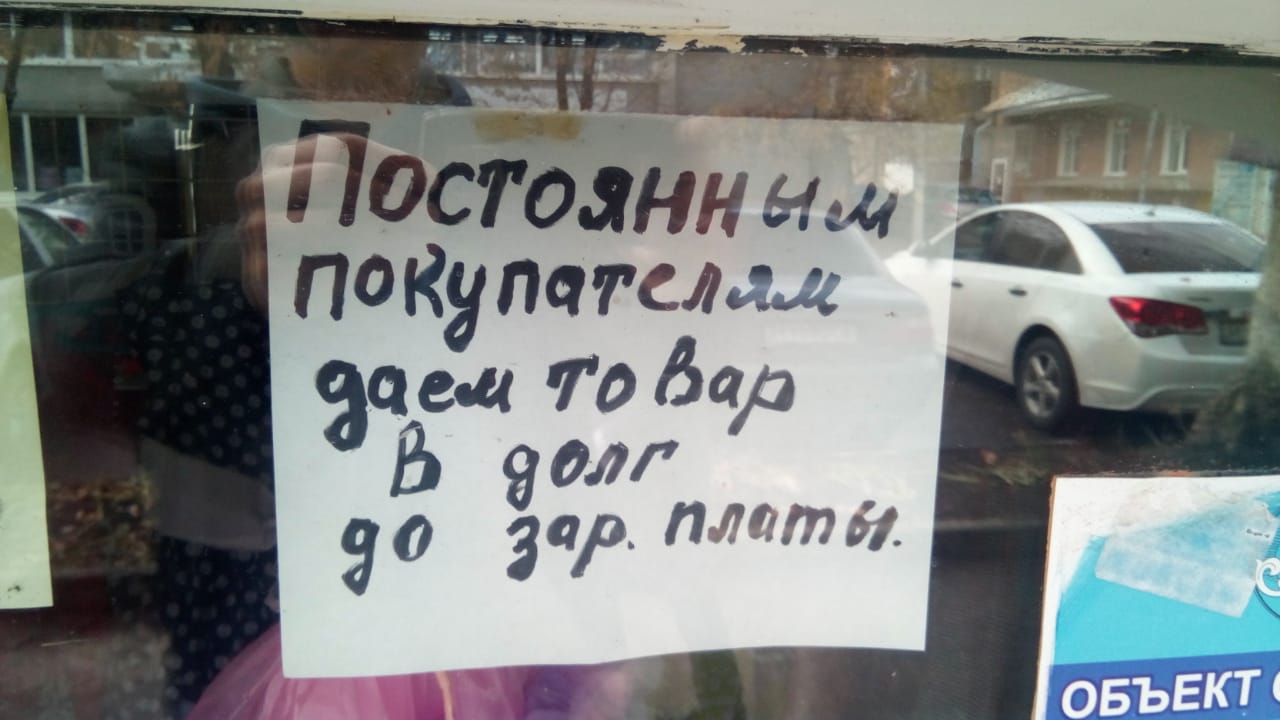 Постоянным
покупателям
даем товар
в долг
до зар. платы.
ОБЪЕКТ